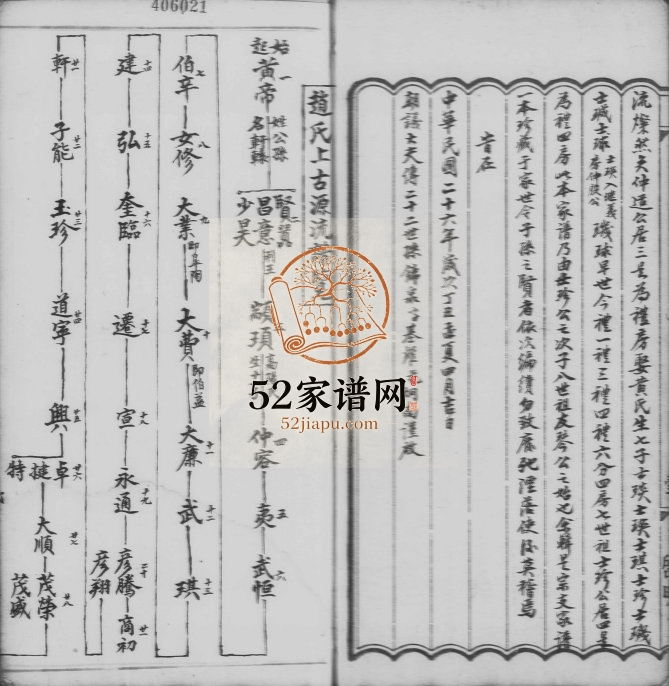 406021
流燦然天仲造公居三是為禮房娶黃氏生七子士琰士瑛士琪士珍士璣
士瑊士球 士瑛入港義房仲段公 璣球早世今禮一禮三禮四禮六分四房七世祖士珍公居四是
為禮四房此本家譜乃由士珍公之次子八世祖友琴公之始也余輯是宗支家譜
一本珍藏于家世令子孫之賢者依次編續勿致廢弛湮落使後莫稽焉
肯在
中華民國二十六年歲次丁丑孟夏四月吉日
朝議士大夫傳二十二世孫錦
趙氏上古源流
始起 一 黃帝 姓公孫名軒轅 二 賢 昌意 少昊 顓頊 四 仲容 五 夷 六 武恒
七 伯辛 八 女修 九 大業 即皋陶 十 大費 即伯益 十一 大廉 十二 武 十三 琪
十四 建 十五 弘 十六 奎臨 十七 遷 十八 宣 十九 永通 二十 彥騰 彥翔 廿一 商初
廿一 軒 廿二 子能 廿三 玉珍 廿四 道寧 廿五 興 廿六 卓 捷 特 廿七 大順 廿八 茂榮 茂盛
52家谱网
52jiapu.com